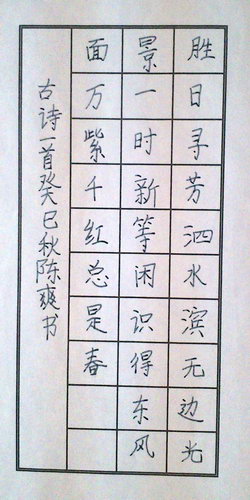 胜日寻芳泗水滨无边光
景一时新等闲识得东风
面万紫千红总是春
古诗一首癸巳秋陈爽书